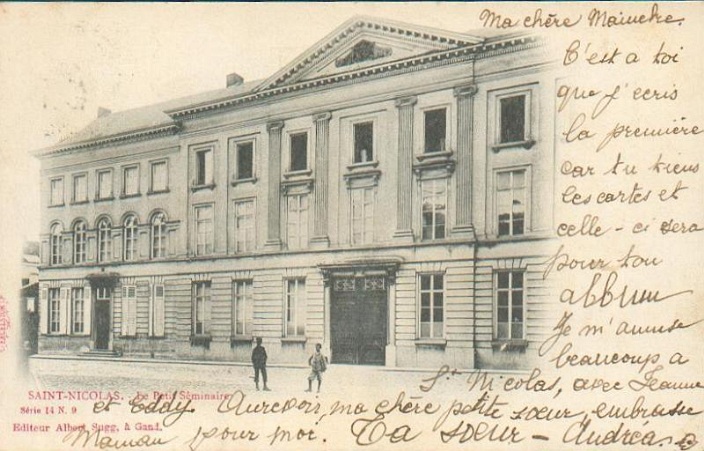 Ma chère Mainche.
C'est a toi
que j'ecris
la première
car tu tiens
les cartes et
celle-ci sera
pour ton
album
Je m'amuse
beaucoup a
St Nicolas, avec Jeanne
et Eddy. Aurevoir, ma chère petite sœur, embrasse
Maman pour moi. Ta sœur - Andréa.
SAINT-NICOLAS. Le Petit Séminaire
Série 14 N. 9
Editeur Albert Sugg, à Gand.